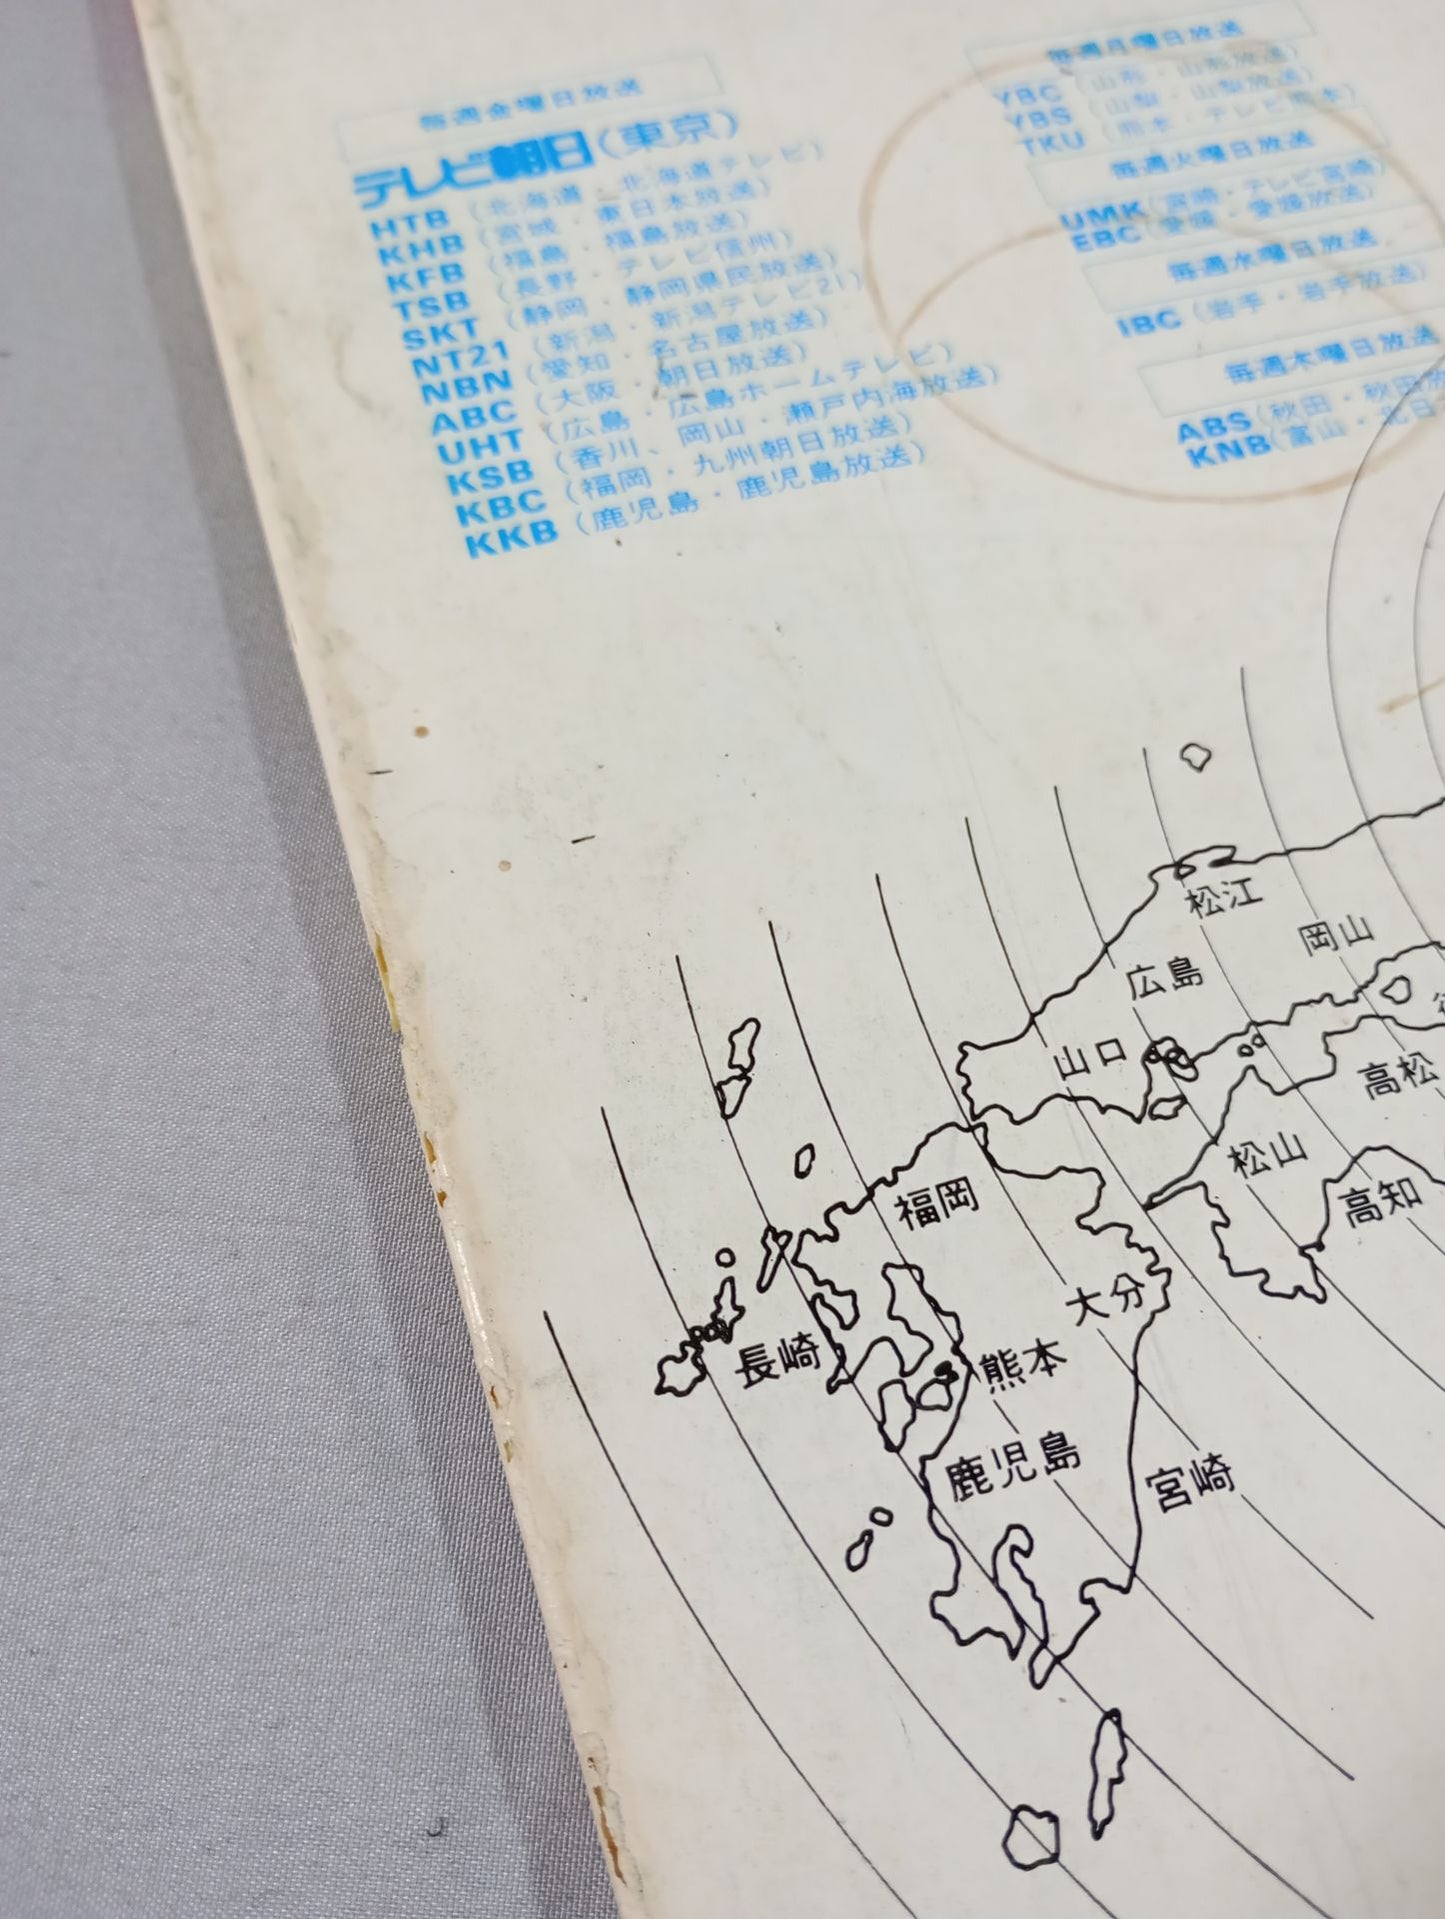 毎週金曜日放送
テレビ朝日(東京)
HTB(北海道・北海道テレビ)
KHB(宮城・東日本放送)
KFB(福島・福島放送)
TSB(長野・テレビ信州)
SKT(静岡・静岡県民放送)
NT21(新潟・新潟テレビ21)
NBN(愛知・名古屋放送)
ABC(大阪・朝日放送)
UHT(広島・広島ホームテレビ)
KSB(香川、岡山・瀬戸内海放送)
KBC(福岡・九州朝日放送)
KKB(鹿児島・鹿児島放送)
毎週月曜日放送
YBC(山形・山形放送)
YBS(山梨・山梨放送)
TKU(熊本・テレビ熊本)
毎週火曜日放送
UMK(宮崎・テレビ宮崎)
EBC(愛媛・愛媛放送)
毎週水曜日放送
IBC(岩手・岩手放送)
毎週木曜日放送
ABS(秋田・秋田放
KNB(富山・北日
松江
岡山
広島
山口
高松
松山
高知
福岡
大分
長崎
熊本
鹿児島
宮崎